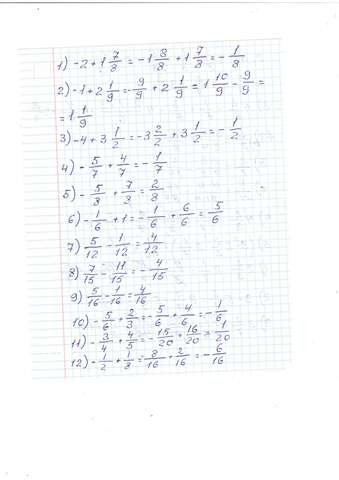 1) -2 + 1 7/8 = -1 8/8 + 1 7/8 = -1/8
2) -1 + 2 1/9 = -9/9 + 2 1/9 = 1 10/9 - 9/9 =
= 1 1/9
3) -4 + 3 1/2 = -3 2/2 + 3 1/2 = -1/2
4) -5/7 + 4/7 = -1/7
5) -5/8 + 7/8 = 2/8
6) -1/6 + 1 = -1/6 + 6/6 = 5/6
7) 5/12 - 1/12 = 4/12
8) 7/15 - 11/15 = -4/15
9) 5/16 - 1/16 = 4/16
10) -5/6 + 2/3 = -5/6 + 4/6 = -1/6
11) -3/4 + 4/5 = -15/20 + 16/20 = 1/20
12) -1/2 + 1/8 = 8/16 + 2/16 = -6/16